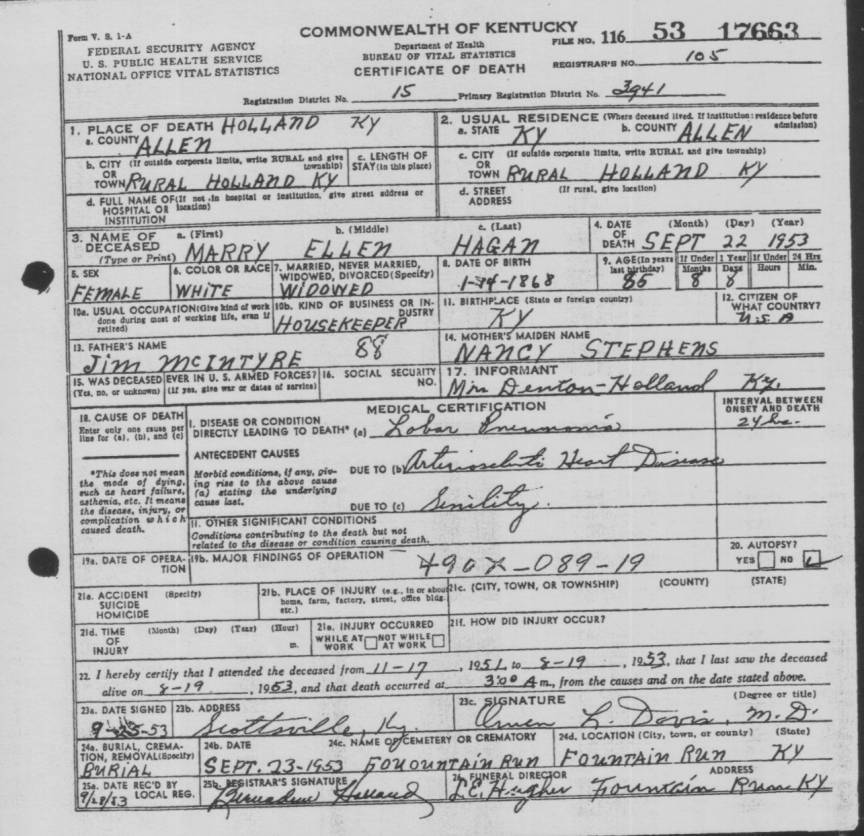 Form V. S. 1-A
FEDERAL SECURITY AGENCY
U. S. PUBLIC HEALTH SERVICE
NATIONAL OFFICE VITAL STATISTICS
COMMONWEALTH OF KENTUCKY
Department of Health
BUREAU OF VITAL STATISTICS
CERTIFICATE OF DEATH
FILE NO. 116 53 17663
REGISTRAR'S NO. 105
Registration District No. 15 Primary Registration District No. 3941
1. PLACE OF DEATH HOLLAND KY
a. COUNTY ALLEN
2. USUAL RESIDENCE (Where deceased lived. If institution: residence before admission)
a. STATE KY b. COUNTY ALLEN
b. CITY (If outside corporate limits, write RURAL and give township)
OR
TOWN RURAL HOLLAND KY
c. LENGTH OF STAY (in this place)
c. CITY (If outside corporate limits, write RURAL and give township)
OR
TOWN RURAL HOLLAND KY
d. FULL NAME OF (If not in hospital or institution, give street address or location)
HOSPITAL OR
INSTITUTION
d. STREET ADDRESS (If rural, give location)
3. NAME OF DECEASED (Type or Print)
a. (First) b. (Middle) c. (Last)
MARRY ELLEN HAGAN
4. DATE OF DEATH (Month) (Day) (Year)
SEPT 22 1953
5. SEX
FEMALE
6. COLOR OR RACE
WHITE
7. MARRIED, NEVER MARRIED, WIDOWED, DIVORCED (Specify)
WIDOWED
8. DATE OF BIRTH
1-14-1868
9. AGE (In years last birthday) If Under 1 Year Months Days If Under 24 Hrs Hours Min.
85 8 8
10a. USUAL OCCUPATION (Give kind of work done during most of working life, even if retired)
10b. KIND OF BUSINESS OR INDUSTRY
HOUSEKEEPER
11. BIRTHPLACE (State or foreign country)
KY
12. CITIZEN OF WHAT COUNTRY?
U.S.A
13. FATHER'S NAME
JIM McINTYRE 88
14. MOTHER'S MAIDEN NAME
NANCY STEPHENS
15. WAS DECEASED EVER IN U. S. ARMED FORCES?
(Yes, no, or unknown) (If yes, give war or dates of service)
16. SOCIAL SECURITY NO.
17. INFORMANT
Mrs Denton-Holland Ky.
18. CAUSE OF DEATH
Enter only one cause per line for (a), (b), and (c)
*This does not mean the mode of dying, such as heart failure, asthenia, etc. It means the disease, injury, or complication which caused death.
MEDICAL CERTIFICATION
INTERVAL BETWEEN ONSET AND DEATH
I. DISEASE OR CONDITION
DIRECTLY LEADING TO DEATH* (a) Lobar Pneumonia 24 hr.
ANTECEDENT CAUSES
Morbid conditions, if any, giving rise to the above cause (a) stating the underlying cause last.
DUE TO (b) Arteriosclerotic Heart Disease
DUE TO (c) Senility.
II. OTHER SIGNIFICANT CONDITIONS
Conditions contributing to the death but not related to the disease or condition causing death.
19a. DATE OF OPERATION
19b. MAJOR FINDINGS OF OPERATION
490X-089-19
20. AUTOPSY?
YES NO
21a. ACCIDENT (Specify)
SUICIDE
HOMICIDE
21b. PLACE OF INJURY (e.g., in or about home, farm, factory, street, office bldg. etc.)
21c. (CITY, TOWN, OR TOWNSHIP) (COUNTY) (STATE)
21d. TIME OF INJURY (Month) (Day) (Year) (Hour) m.
21e. INJURY OCCURRED
WHILE AT WORK NOT WHILE AT WORK
21f. HOW DID INJURY OCCUR?
22. I hereby certify that I attended the deceased from 11-17, 1951, to 8-19, 1953, that I last saw the deceased
alive on 8-19, 1953, and that death occurred at 3:00 A m., from the causes and on the date stated above.
23a. DATE SIGNED
9-25-53
23b. ADDRESS
Scottsville, Ky.
23c. SIGNATURE (Degree or title)
Owen L. Davis, M.D.
24a. BURIAL, CREMATION, REMOVAL (Specify)
BURIAL
24b. DATE
SEPT. 23-1953
24c. NAME OF CEMETERY OR CREMATORY
FOUOUNTAIN RUN
24d. LOCATION (City, town, or county) (State)
FOUNTAIN RUN KY
25a. DATE REC'D BY LOCAL REG.
9/28/53
25b. REGISTRAR'S SIGNATURE
Bernadine Holland
26. FUNERAL DIRECTOR ADDRESS
L.E. Hughes Fountain Run KY